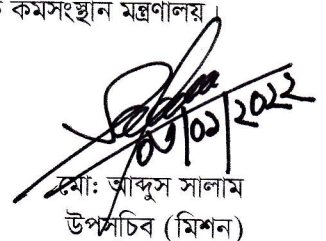 কর্মসংস্থান মন্ত্রণালয়।
০৬/০১/২০২২
মো: আব্দুস সালাম
উপসচিব (মিশন)